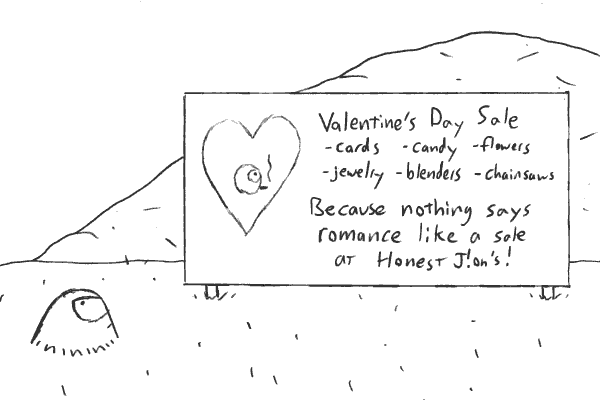 Valentine's Day Sale
-cards -candy -flowers
-jewelry -blenders -chainsaws
Because nothing says
romance like a sale
at Honest J!on's!